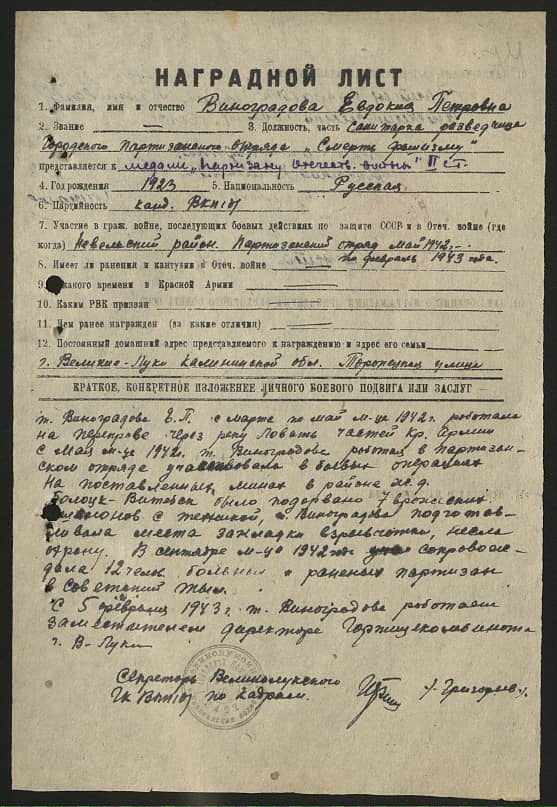 НАГРАДНОЙ ЛИСТ
1. Фамилия, имя и отчество Виноградова Евдокия Петровна
2. Звание — 3. Должность, часть Санитарка разведчица
Городского Партизанского отряда „Смерть фашизму"
представляется к медали „партизану отечеств. войны" II ст.
4. Год рождения 1923 5. Национальность Русская
6. Партийность канд. ВКП(б)
7. Участие в граж. войне, последующих боевых действиях по защите СССР и в Отеч. войне (где
когда) Невельский район. Партизанский отряд май 1942,-
по февраль 1943 года.
8. Имеет ли ранения и контузии в Отеч. войне —
9. С какого времени в Красной Армии —
10. Каким РВК призван —
11. Чем ранее награжден (за какие отличия) —
12. Постоянный домашний адрес представляемого к награждению и адрес его семьи
г. Великие-Луки Калининской обл. Торопецкая улица
КРАТКОЕ, КОНКРЕТНОЕ ИЗЛОЖЕНИЕ ЛИЧНОГО БОЕВОГО ПОДВИГА ИЛИ ЗАСЛУГ
т. Виноградова Е.П. с марта по май м-ца 1942г. работала
на переправе через реку Ловать частей Кр. Армии
С мая м-ца 1942г. т. Виноградова работая в партизан-
ском отряде участвовала в боевых операциях
На поставленных минах в районе ж.д.
Полоцк-Витебск было подорвано 7 вражеских
эшелонов с техникой, т. Виноградова подготав-
ливала места закладки взрывчатки, несла
охрану. В сентябре м-це 1942 сопровож-
дала 12 челов. больных и раненых партизан
в советский тыл.
С 5 февраля 1943г. т. Виноградова работает
заместителем директора Горпищекомбината
г. В-Луки
Секретарь Великолукского
ГК ВКП(б) по кадрам. /-Григорьев-/.